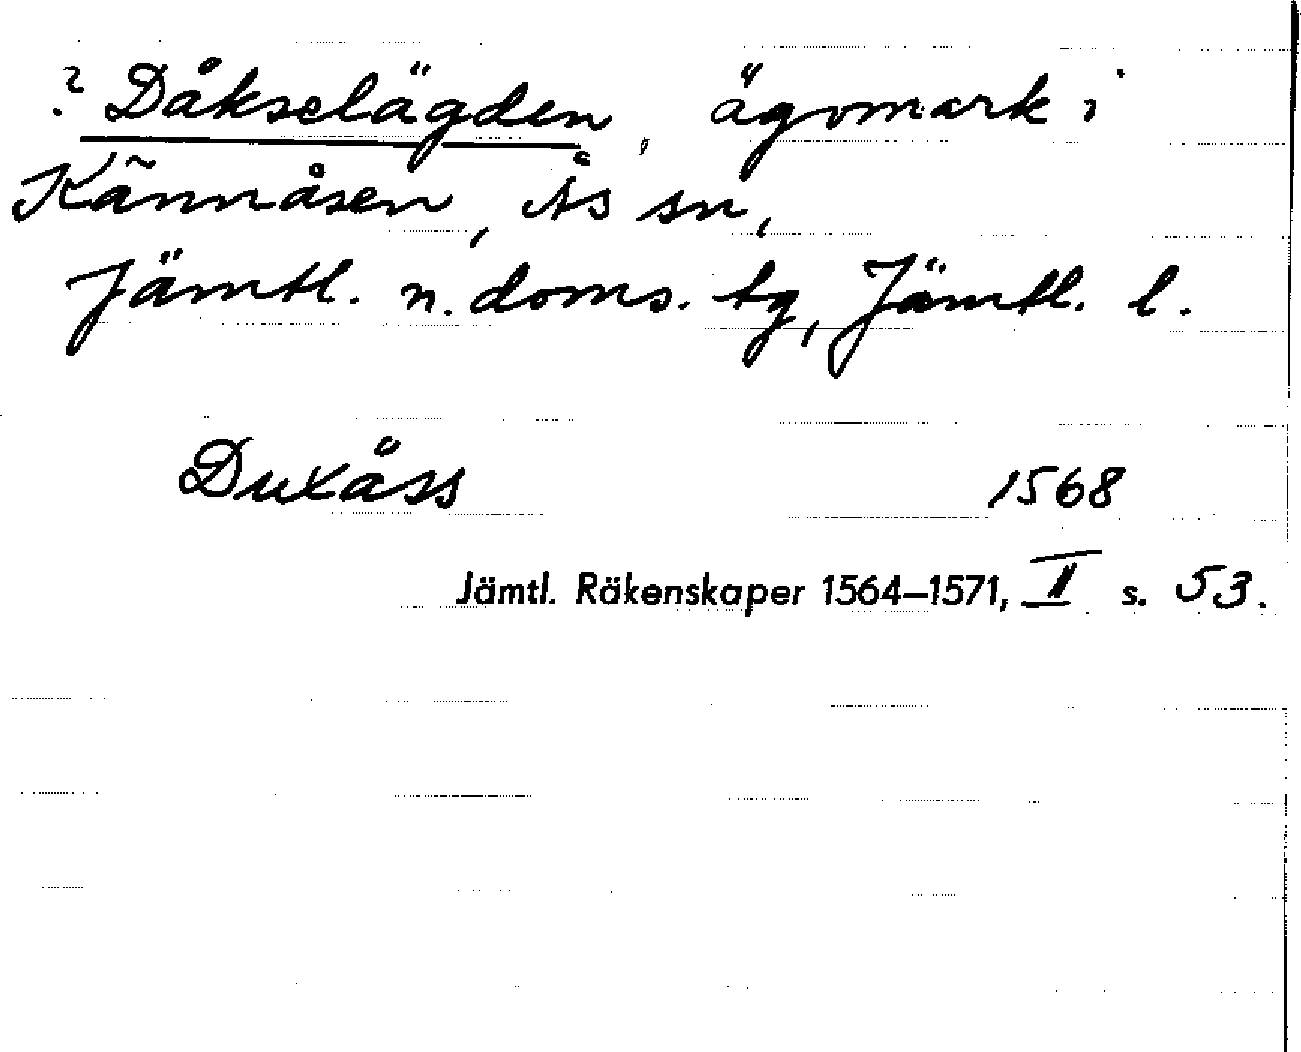 ? Dåkselägden, ägomark i
Kännåsen, Ås sn,
Jämtl. n. doms. tg, Jämtl. l.
Duxåss 1568
Jämtl. Räkenskaper 1564–1571, II s. 53.